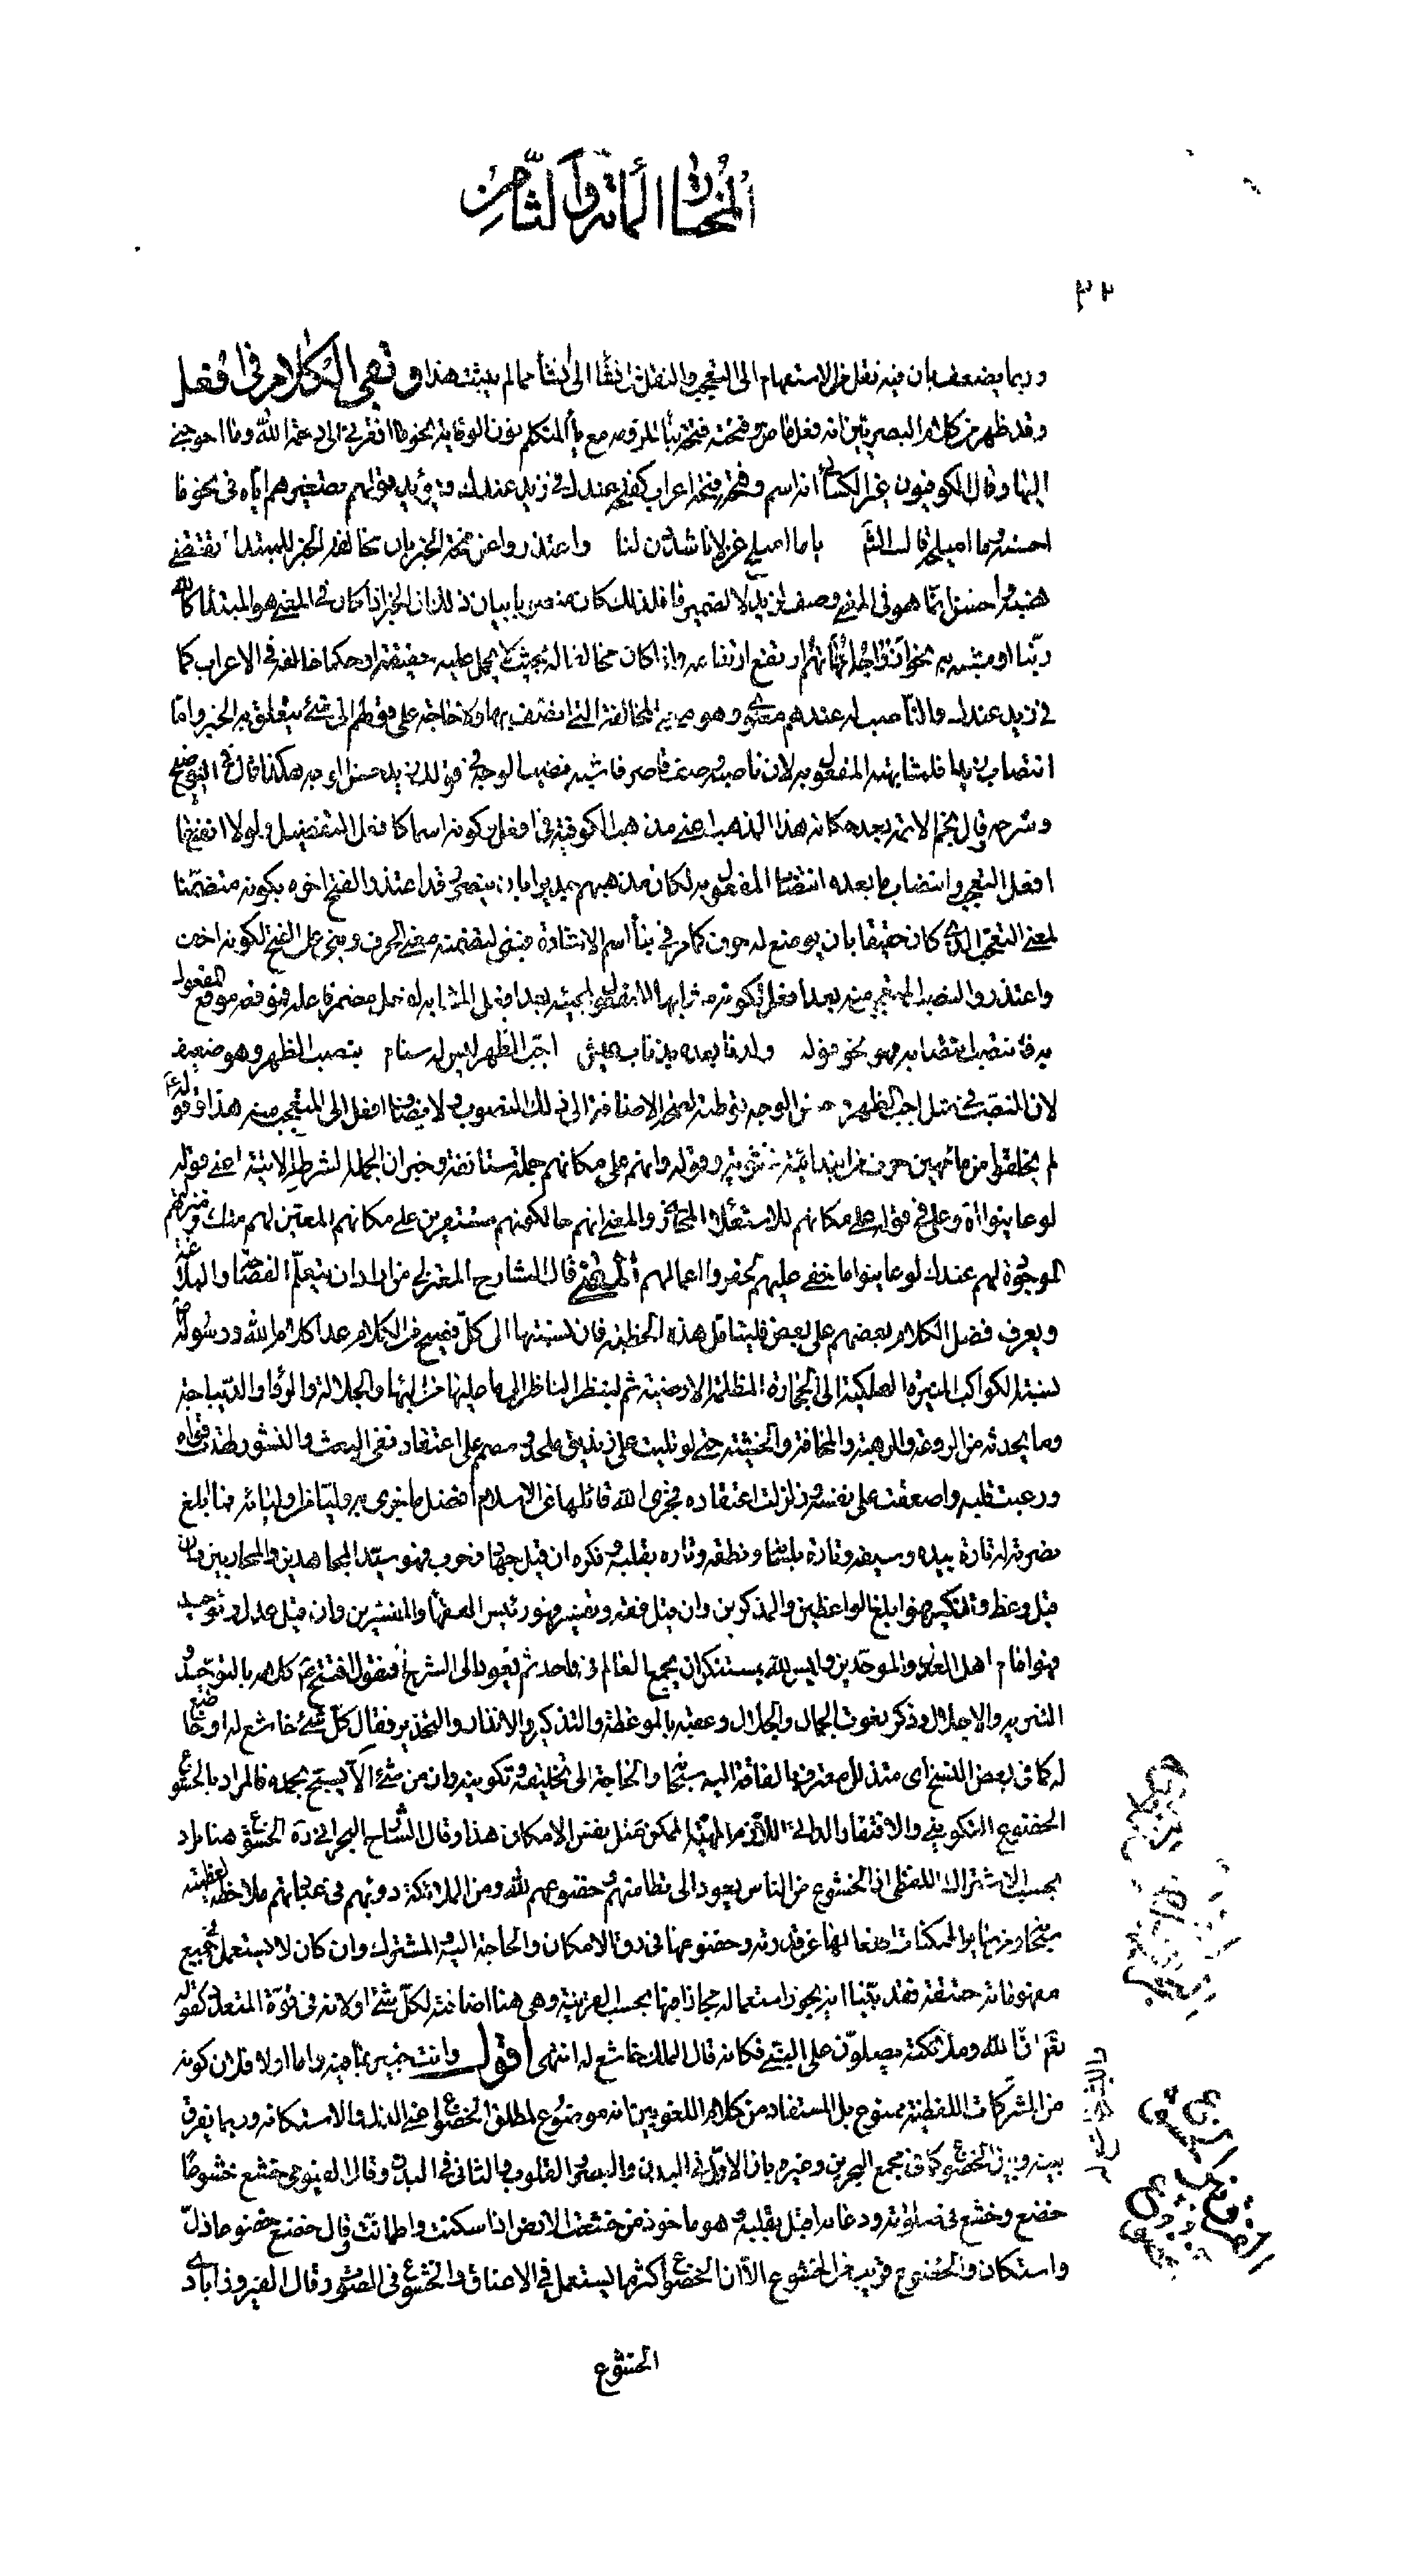 المختار المائة والثامن
٣٢
وربما يضعف بأن فيه نقل من الاستفهام الى التعجب والنقل من انشاء الى انشاء مما لم يثبت هذا وبقى الكلام فى افعل
وقد ظهر من كلام البصريين انه فعل ماض وفتحته فتحة بناء للزومه مع ياء المتكلم نون الوقاية نحو ما افقرني الى رحمة الله وما احوجني
اليها وقال الكوفيون غير الكسائى انه اسم وفتحته فتحة اعراب كفتحة عندك في زيد عندك ويؤيد قولهم تصغيرهم اياه فى نحو ما
احسنه وما اميلحه قال الشاعر ياما اميلح غزلانا شدن لنا واعتذروا عن فتحة الخبر بان مخالفة الخبر للمبتدا تقتضي
نصبه واحسن انما هو فى المعنى وصف لزيد لا لضمير ما فلذلك كان منصوبا بيان ذلك ان الخبر اذا كان في المعنى هو المبتدأ كالله
ربنا او مشبه به نحو ازواجه امهاتهم ارتفع ارتفاعه واذا كان مخالفا له بحيث لا يحمل عليه حقيقة او حكما خالفه في الاعراب كما
في زيد عندك والناصب له عندهم معنوى وهو معنى المخالفة التي اتصف بها ولا حاجة على قولهم الى شئ يتعلق به الخبر واما
انتصاب زيدا فلمشابهته المفعول به لان ناصبه وصف قاصر فاشبه نصب الوجه في قولك زيد حسن الوجه هكذا قال في التوضيح
وشرحه وقال نجم الائمة بعد حكاية هذا المذهب اعني مذهب الكوفية فى افعل من كونه اسما كافعل التفضيل ولولا انفتاح
افعل التعجب وانتصاب ما بعده انتصاب المفعول به لكان مذهبهم جديرا بان ينصر وقد اعتذروا لفتح اخره بكونه متضمنا
لمعنى التعجب الذى كان حقيقا بان يوضع له حرف كما مر في بناء اسم الاشارة فبنى لتضمنه معنى الحرف وبنى على الفتح لكونه اخف
واعتذروا لنصب المتعجب منه بعد افعل بكونه مشابها للمفعول لمجيئه بعد افعل المشابه لفعل مضمر فاعله فموقعه موقع المفعول
به فانتصب انتصابه فهو نحو قوله ولدنا بعده بذناب عيش اجب الظهر ليس له سنام بنصب الظهر وهو ضعيف
لان النصب في مثل اجب الظهر وحسن الوجه توطئة لصحة الاضافة الى ذلك المنصوب ولا يضاف افعل الى المتعجب منه هذا وقوله
لم يخلقوا من ماء مهين حرف من ابتدائية نشوية وقوله وانهم على مكانهم جملة مستانفة وخبر ان الجملة الشرطية الاتية اعني قوله
لو عاينوا اه وعلى في قوله على مكانهم للاستعلاء المجازى والمعنى انهم حالكونهم مستقرين على مكانهم المعين لهم منك ومنزلتهم
الموجودة لهم عندك لو عاينوا ما خفى عليهم لحقروا اعمالهم المعنى قال الشارح المعتزلي من اراد ان يتعلم الفصاحة والبلاغة
ويعرف فضل الكلام بعضهم على بعض فليتامل هذه الخطبة فان نسبتها الى كل فصيح من الكلام عدا كلام الله ورسوله
نسبة الكواكب المنيرة الفلكية الى الحجارة المظلمة الارضية ثم لينظر الناظر الى ما عليها من البهاء والجلالة والرواء والديباجة
وما يحدثه من الروعة والرهبة والمخافة والخشية حتى لو تليت على زنديق ملحد مصمم على اعتقاد نفى البعث والنشور لهدت قواه
ورعبت قلبه واضعفت على نفسه وزلزلت اعتقاده فجزى الله قائلها عن الاسلام افضل ما جزى به وليا من اوليائه فما ابلغ
نصرته له تارة بيده وسيفه وتارة بلسانه ونطقه وتارة بقلبه وفكره ان قيل جهاد وحرب فهو سيد المجاهدين والمحاربين وان
قيل وعظ وتذكير فهو ابلغ الواعظين والمذكرين وان قيل فقه وتفسير فهو رئيس الفقهاء والمفسرين وان قيل عدل وتوحيد
فهو امام اهل العدل والموحدين وليس لله بمستنكر ان يجمع العالم فى واحد ثم نعود الى الشرح فنقول افتتح ع كلامه بالتوحيد و
التنزيه والاجلال وذكر نعوت الجمال والجلال وعقبه بالموعظة والتذكير والانذار والتحذير فقال كل شئ خاشع له او خاضع
له كما فى بعض النسخ اى متذلل معترف بالفاقة اليه سبحانه والحاجة الى تخليقه وتكوينه وان من شئ الا يسبح بحمده فالمراد بالخشوع
الخضوع التكويني والافتقار الذاتي اللازم لمهية الممكن مثل نفس الامكان هذا وقال الشارح البحراني ره الخشوع هنا مراد
بحسب الاشتراك اللفظى اذ الخشوع من الناس يعود الى تطامنهم وخضوعهم لله ومن الملائكة دوبهم فى عباداتهم ملاحظة لعظمته
سبحانه ومن ساير الممكنات انفعالها عن قدرته وخضوعها فى رق الامكان والحاجة اليه والمشترك وان كان لا يستعمل في جميع
مفهوماته حقيقة فقد بينا انه يجوز استعماله مجازا فيها بحسب القرينة وهى هنا اضافته لكل شئ او لانه فى قوة المتعدد كقوله
تعالى ان الله وملائكته يصلون على النبي فكانه قال الملك خاشع له انتهى اقول وانت خبير بما فيه اما اولا فلان كونه
من المشتركات اللفظية ممنوع بل المستفاد من كلام اللغويين انه موضوع لمطلق الخضوع اعني الذلة والاستكانة وربما يفرق
بينه وبين الخضوع كما فى مجمع البحرين وغيره بان الاول في البدن والبصر والقلوب والثانى فى البدن وقال الفيومي خشع خشوعا
خضع وخشع فى صلوته ودعائه اقبل بقلبه وهو ماخوذ من خشعت الارض اذا سكنت واطمانت وقال خضع خضوعا ذل
واستكان والخضوع قريب من الخشوع الا ان الخضوع اكثر ما يستعمل في الاعناق والخشوع فى الصوت وقال الفيروزآبادى
الخشوع